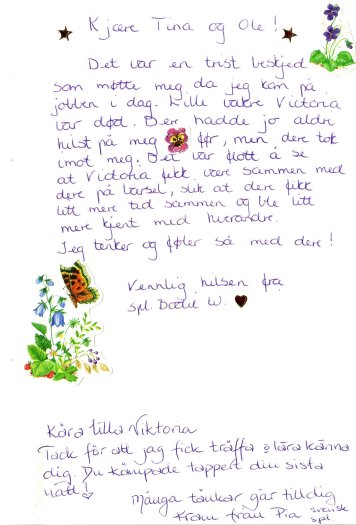 Kjære Tina og Ole!
Det var en trist beskjed
som møtte meg da jeg kom på
jobben i dag. Lille vakre Victoria
var død. Dere hadde jo aldri
hilst på meg før, men dere tok
imot meg. Det var flott å se
at Victoria fikk være sammen med
dere på barsel, slik at dere fikk
litt mere tid sammen og ble litt
mere kjent med hverandre.
Jeg tenker og føler så med dere!
Vennlig hilsen fra
spl. Bodil W.
Kära lilla Viktoria
Tack för att jag fick träffa & lära känna
dig. Du kämpade tappert din sista
natt!
Många tankar går till dig
Kram från Pia svensk
spl.